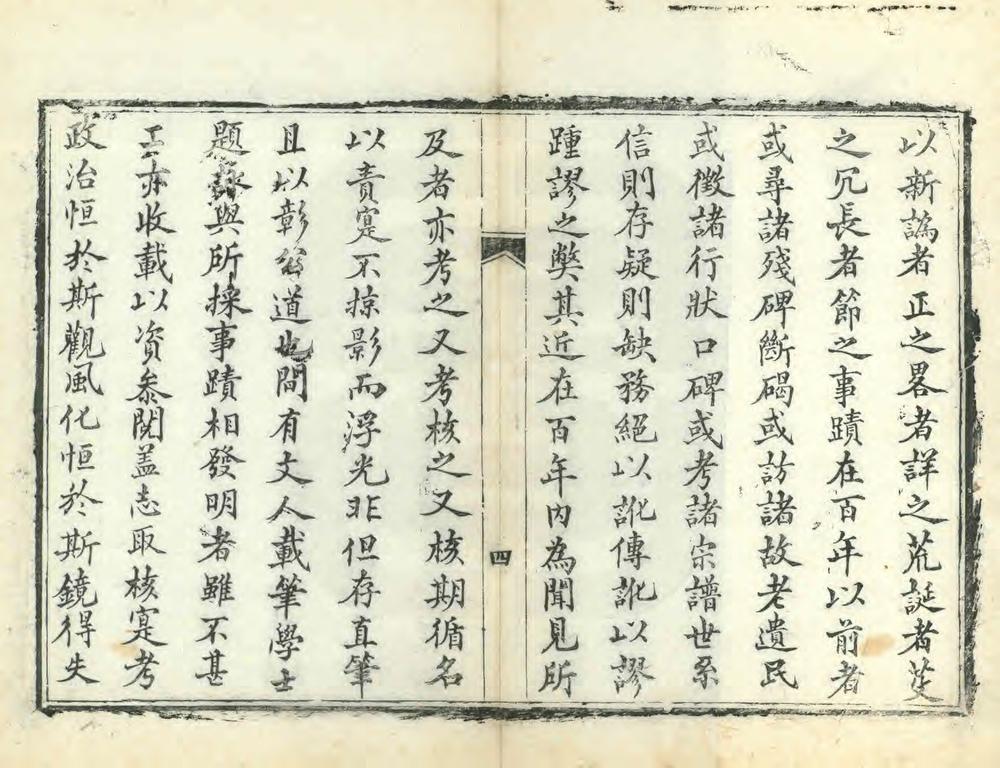 以新譌者正之畧者詳之荒誕者芟
之冗長者節之事蹟在百年以前者
或尋諸殘碑斷碣或訪諸故老遺民
或徵諸行狀口碑或考諸宗譜世系
信則存疑則缺務絕以訛傳訛以謬
踵謬之獘其近在百年內為聞見所
四
及者亦考之又考核之又核期循名
以責寔不掠影而浮光非但存直筆
且以彰公道也間有文人載筆學士
題詠與所採事蹟相發明者雖不甚
工亦收載以資叅閱盖志取核寔考
政治恒於斯觀風化恒於斯鏡得失